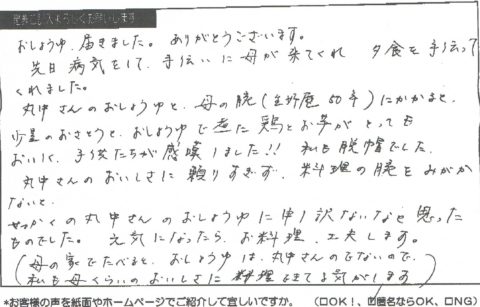 是非ご記入よろしくお願いします
おしょうゆ、届きました。ありがとうございます。
先日病気をして、手伝いに母が来てくれ 夕食を手伝って
くれました。
丸中さんのおしょうゆと、母の腕(主婦歴50年)にかかると、
少量のおさとうと、おしょうゆで煮た鶏とお芋がとっても
おいしく、子供たちが感嘆しました!! 私も脱帽でした。
丸中さんのおいしさに頼りすぎず、料理の腕をみがか
ないと、
せっかくの丸中さんのおしょうゆに申し訳ないなと思った
ものでした。元気になったら、お料理、工夫します。
(母の家でたべると、おしょうゆは、丸中さんのでないので、
私も母くらいのおいしさに料理できてる気がします)
*お客様の声を紙面やホームページでご紹介して宜しいですか。 (□OK!、□匿名ならOK、□NG)